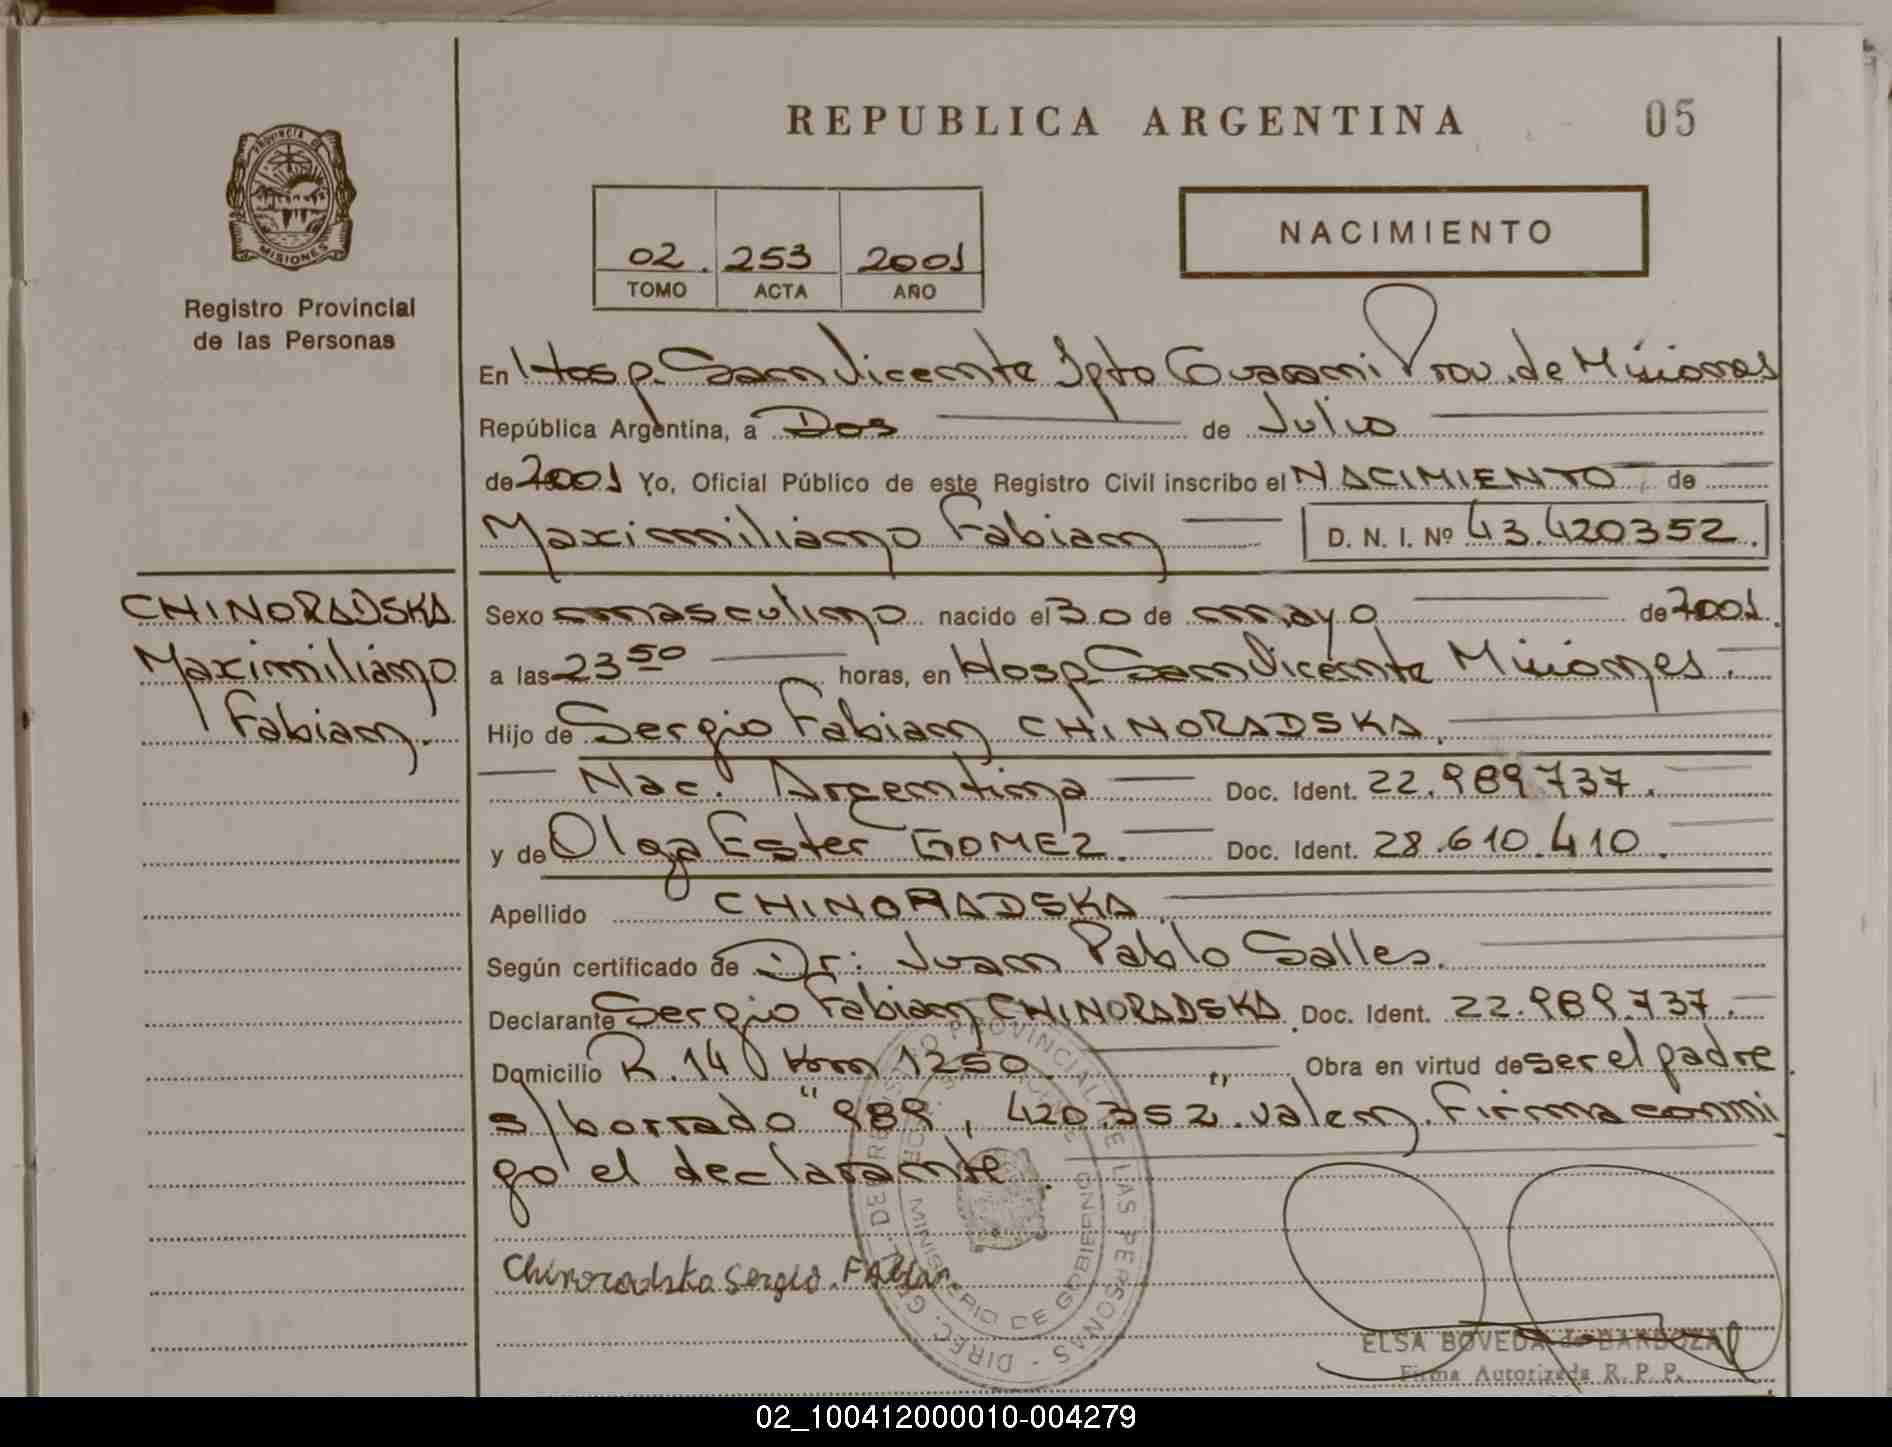 REPUBLICA ARGENTINA
05
PROVINCIA DE
MISIONES
Registro Provincial
de las Personas
02. 253 2001
TOMO ACTA AÑO
NACIMIENTO
En Hosp. San Vicente Dpto Guarani Prov. de Misiones
República Argentina, a Dos de Julio
de 2001 Yo, Oficial Público de este Registro Civil inscribo el NACIMIENTO de
Maximiliano Fabian D. N. I. Nº 43.420352.
CHINORADSKA
Maximiliano
Fabian.
Sexo masculino nacido el 30 de mayo de 2001.
a las 23 50 horas, en Hosp San Vicente Misiones.
Hijo de Sergio Fabian CHINORADSKA.
Nac. Argentina Doc. Ident. 22.989737.
y de Olga Ester GOMEZ. Doc. Ident. 28.610.410.
Apellido CHINORADSKA.
Según certificado de Dr: Juan Pablo Salles.
Declarante Sergio Fabian CHINORADSKA. Doc. Ident. 22.989.737.
Domicilio R. 14 Km 1250. Obra en virtud de ser el padre.
s/borrado "989, 420.352". valen. Firma conmi
go el declarante.
Chinoradska Sergio. FABian.
DIREC. GRAL. DE REGISTRO PROVINCIAL DE LAS PERSONAS
MINISTERIO DE GOBIERNO
ELSA BOVEDA de BARBOZA
Firma Autorizada R. P. P.
02_100412000010-004279